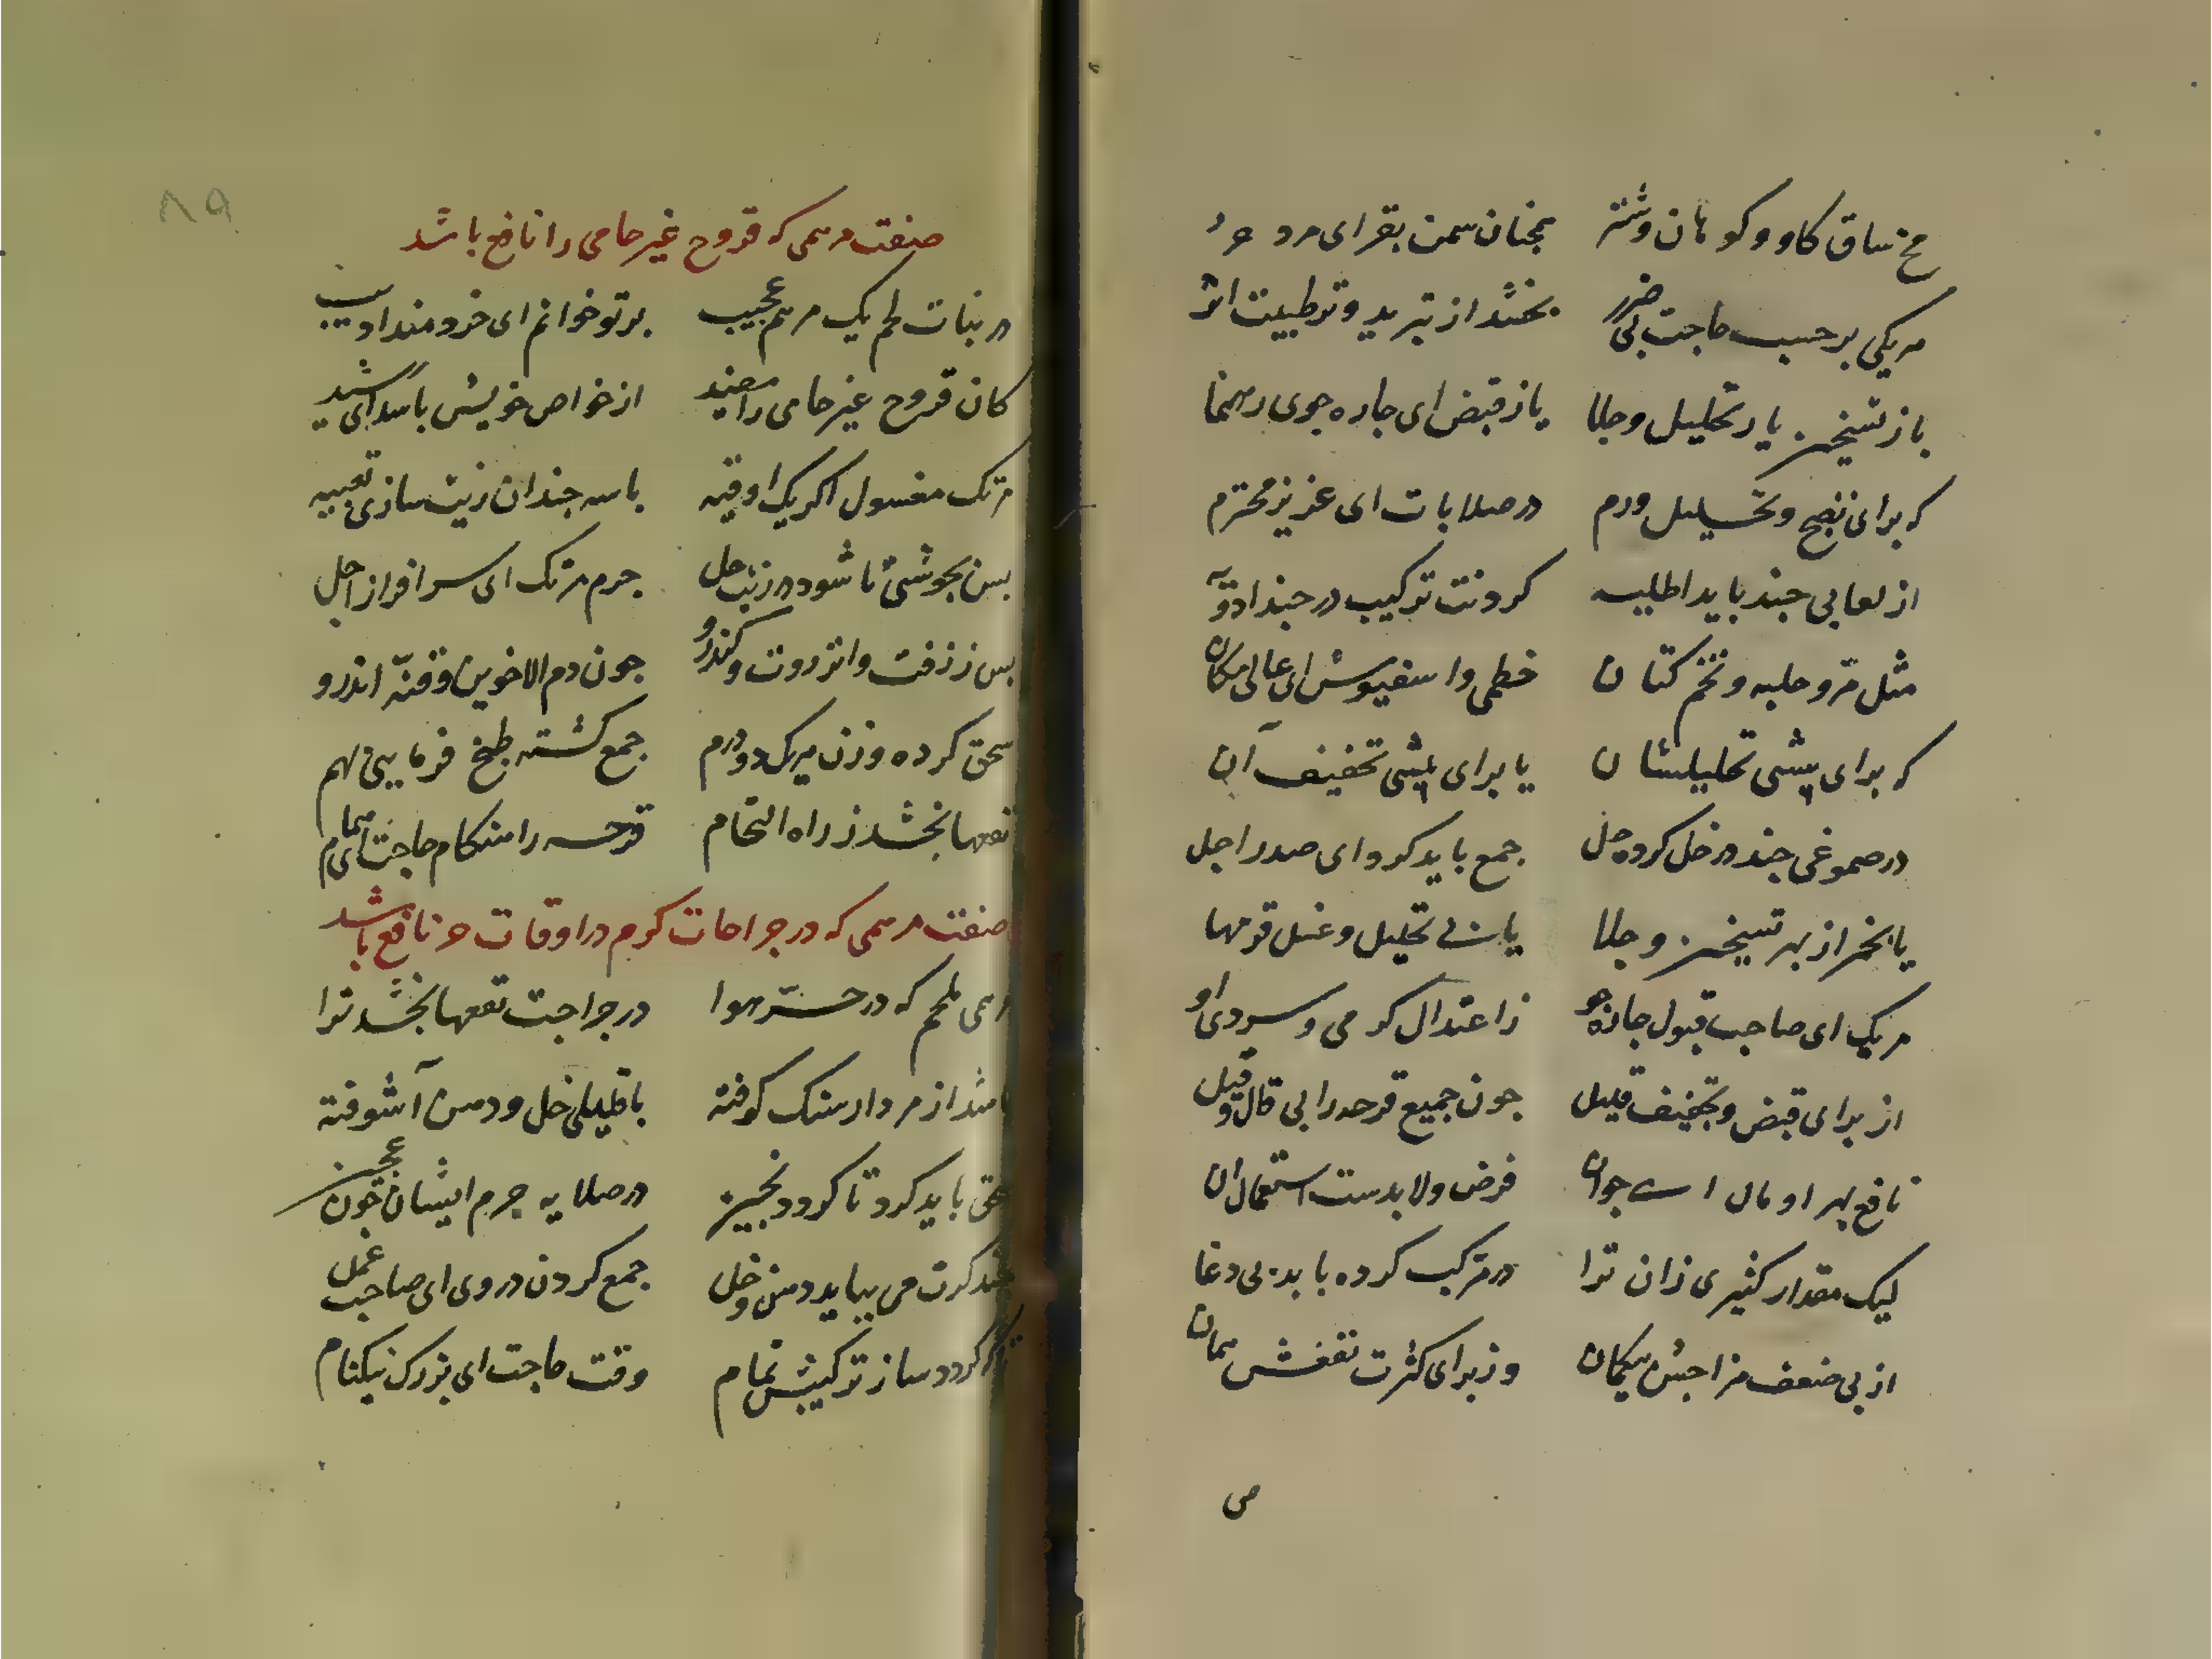 مخ ساق کاو و کوهان و شتر همچنان سمن بقر ای مرد حر
هریکی برحسب حاجت بی ضرر بخشد از تبرید و ترطیبت اثر
باز تسخین یا ز تحلیل و جلا یا ز قبض ای چاره جوی رهنما
که برای نضج و تحلیل ورم در صلابات ای عزیز محترم
از لعابی چند باید اطلیه کردنت ترکیب در چند ادویه
مثل مر و حلبه و تخم کتان خطمی و اسفیوش ای عالی مکان
که برای بیشی تحلیلشان یا برای بیشی تخفیف آن
در صموغی چند در خل کرده حل جمع باید کرد ای صدر اجل
یا بخمر از بهر تسخین و جلا یا پی تحلیل و غسل قرحها
هریک ای صاحب قبول چاره جو ز اعتدال کرمی و سردی او
از برای قبض و تجفیف قلیل چون جمیع قرحه را بی قال و قیل
نافع بهر ای جوان فرض ولابدست استعمال ان
لیک مقدار کثیری زان ترا در مرکب کرده باید بی دغا
از پی ضعف مزاجش بیکمان وز برای کثرت نفعش همان
۸۹
صفت مرهمی که قروح غیر حامی را نافع باشد
در نبات لحم یک مرهم عجیب بر تو خوانم ای خردمند ادیب
کان قروح غیر حامی را مفید از خواص خویش باشد ای رشید
مرتک مغسول اکر یک اوقیه با سه چندان زیت سازی تعبیه
پس بجوشی تا شود در زیت حل جرم مرتک ای سرافراز اجل
پس ز زفت و انزروت و کندرو چون دم الاخوین و قنه اندرو
سحق کرده وزن هریک دو درم جمع کشته طبخ فرمایی بهم
نفعها بخشد ز راه التحام قرحه را هنکام حاجت ای همام
صفت مرهمی که در جراحات کرم در اوقات حر نافع باشد
مرهمی ملحم که در حر هوا در جراحت نفعها بخشد ترا
باشد از مردارسنک کوفته با قلیلی خل و دهن آشوفته
سحق باید کرد تا کردد در صلایه جرم ایشان چون عجین
چند کرت می بباید دهن و خل جمع کردن در وی ای صاحب عمل
کردد ساز ترکیبش تمام وقت حاجت ای بزرک نیکنام